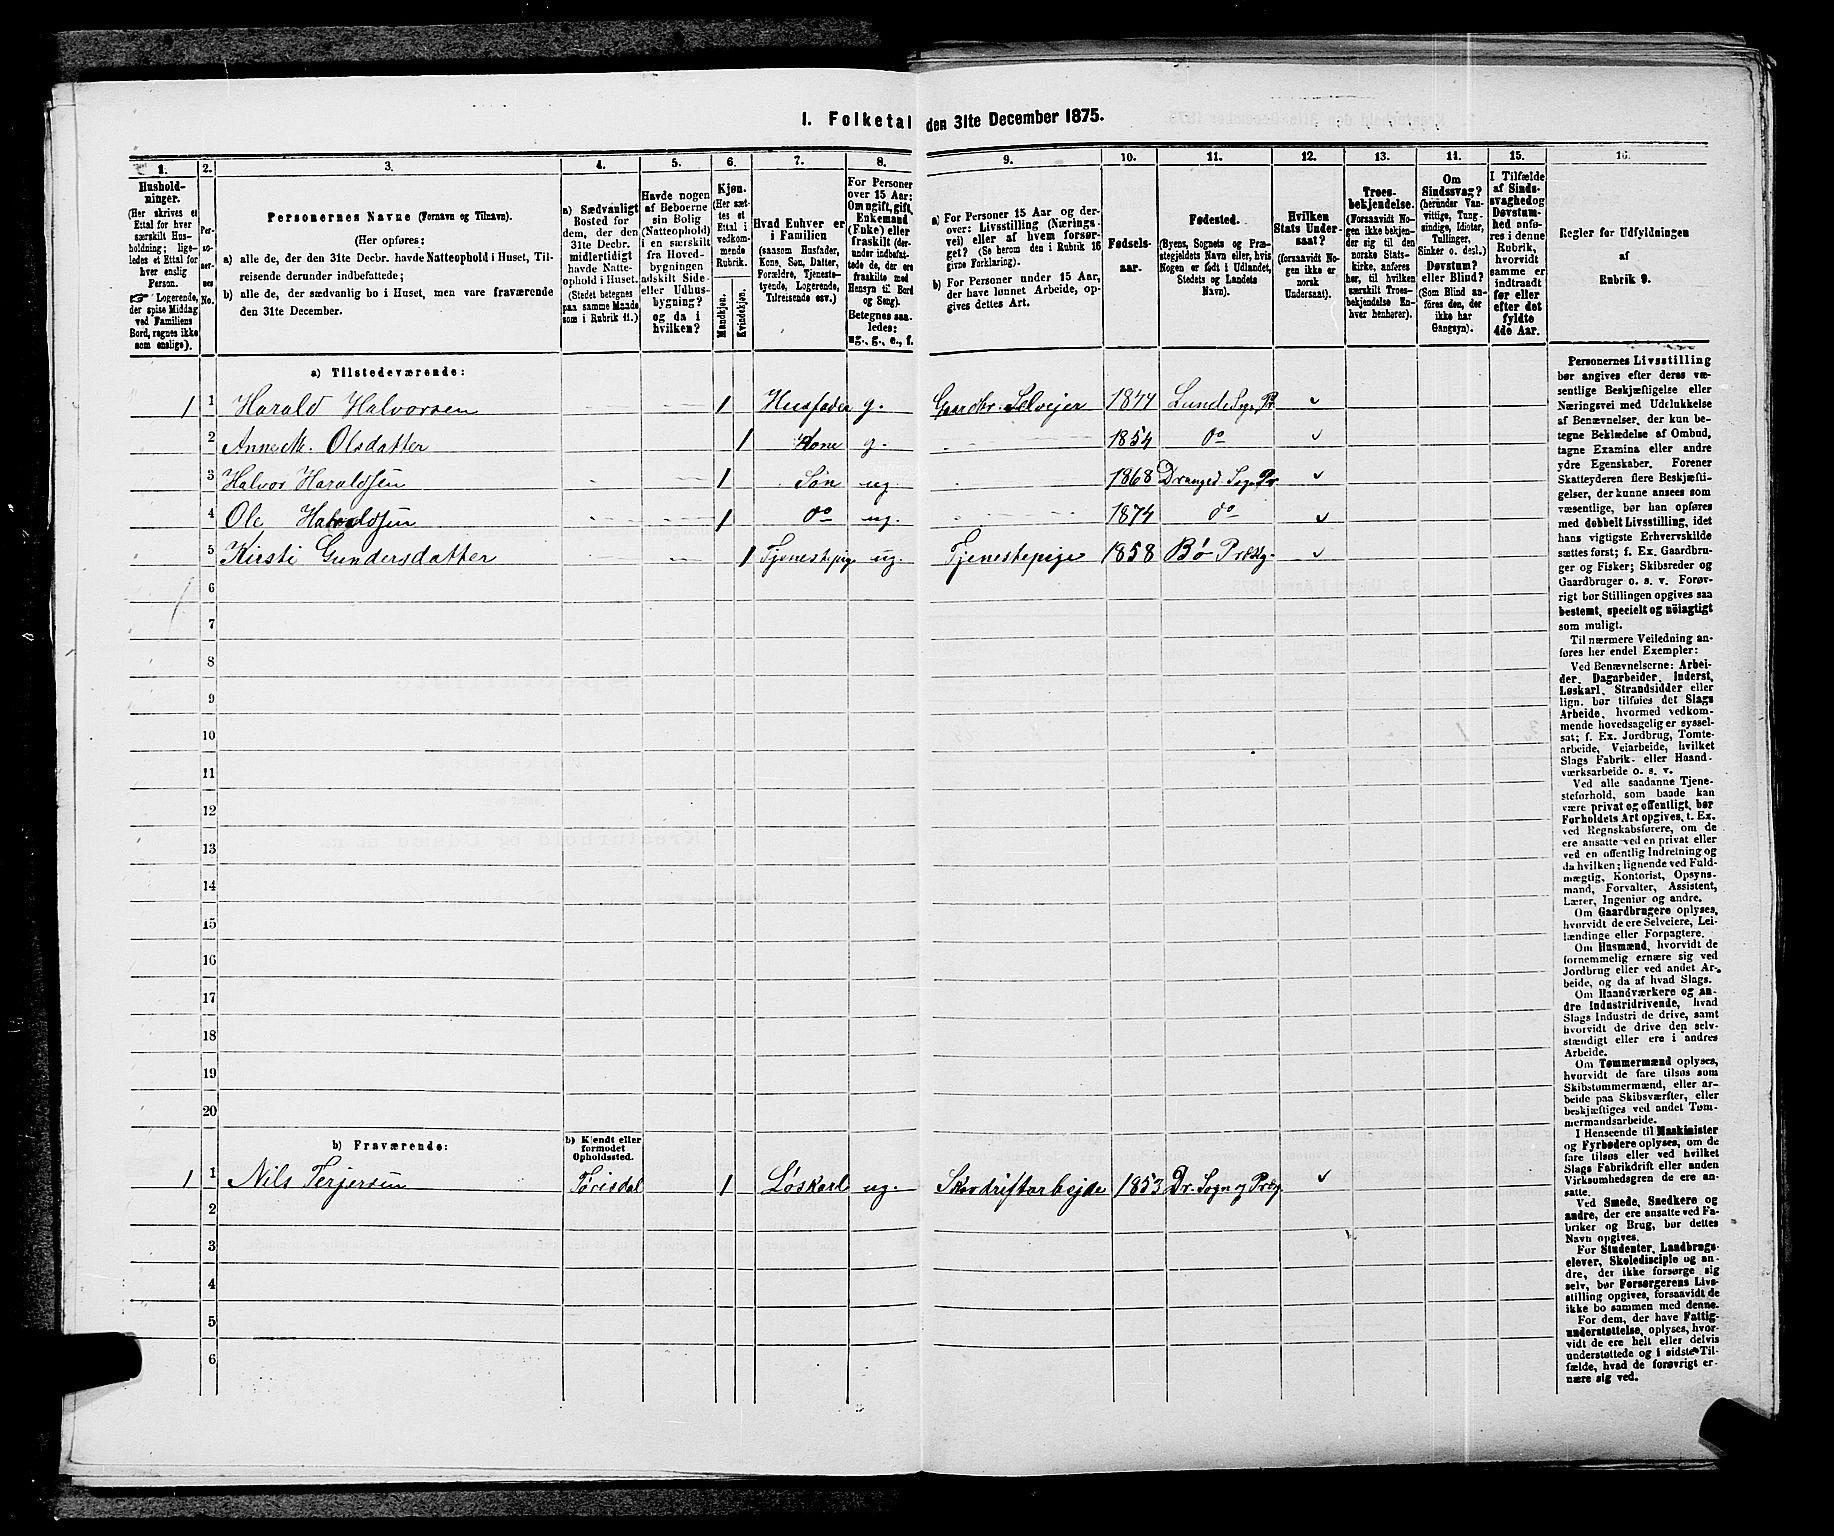 I. Folketal den 31te December 1875.
1. 2. 3. 4. 5. 6. 7. 8. 9. 10. 11. 12. 13. 14. 15. 16.
Hushold-
ninger.
(Her skrives et
Ettal for hver
særskilt Hus-
holdning; lige-
ledes et Ettal for
hver enslig
Person.
☞ Logerende,
der spise Middag
ved Familiens
Bord, regnes ikke
som enslige).
Per-
so-
ner-
nes
No.
Personernes Navne (Fornavn og Tilnavn).
(Her opføres:
a) alle de, der den 31te Decbr. havde Natteophold i Huset, Til-
reisende derunder indbefattede;
b) alle de, der sædvanlig bo i Huset, men vare fraværende
den 31te December.
a) Sædvanligt
Bosted for
dem, der den
31te Decbr.
midlertidigt
havde Natte-
ophold i Huset.
(Stedet betegnes
paa samme Maade,
som i Rubrik 11.)
Havde nogen
af Beboerne
sin Bolig
(Natteophold)
i en særskilt
fra Hoved-
bygningen
adskilt Side-
eller Udhus-
bygning?
og da i
hvilken?
Kjøn.
(Her sæt-
tes et
Ettal i
vedkom-
mende
Rubrik.
Mandkjøn.
Kvindekjøn.
Hvad Enhver er
i Familien
(saasom Husfader,
Kone, Søn, Datter,
Forældre, Tjeneste-
tyende, Logerende,
Tilreisende osv.)
For Personer
over 15 Aar:
Om ugift, gift,
Enkemand
(Enke) eller
fraskilt (der-
under indbefat-
tede de, der ere
fraskilte med
Hensyn til Bord
og Seng).
Betegnes saa-
ledes:
ug., g., e., f.
a) For Personer 15 Aar og der-
over: Livsstilling (Nærings-
vei) eller af hvem forsør-
get? (Se herom den i Rubrik 16
givne Forklaring).
b) For Personer under 15 Aar,
der have lønnet Arbeide, op-
gives dettes Art.
Fødsels-
aar.
Fødested.
(Byens, Sognets og Præ-
stegjeldets Navn eller, hvis
Nogen er født i Udlandet,
Stedets og Landets
Navn).
Hvilken
Stats Under-
saat?
(forsaavidt No-
gen ikke er
norsk
Undersaat).
Troes-
bekjendelse.
(Forsaavidt No-
gen ikke bekjen-
der sig til den
norske Stats-
kirke, anføres
her, til hvilken
særskilt Troes-
bekjendelse En-
hver henhører).
Om
Sindssvag?
(herunder Van-
vittige, Tung-
sindige, Idioter,
Tullinger,
Sinker o. desl.)
Døvstum?
eller Blind?
(Som Blind an-
føres den, der
ikke har
Gangsyn).
I Tilfælde
af Sinds-
svaghed og
Døvstum-
hed anfø-
res i denne
Rubrik,
hvorvidt
samme er
indtraadt
før eller
efter det
fyldte
4de Aar.
Regler for Udfyldningen
af
Rubrik 9.
a) Tilstedeværende:
1 1 Harald Halvorsen 1 Husfader g. Gaardbr. Selveier 1844 Lunde Sog. Pr
2 Anne M. Olsdatter 1 Kone g. 1854 do
3 Halvor Haraldsen 1 Søn ug. 1868 Dranged Sog. Pr
4 Ole Haraldsen 1 do ug. 1874 do
5 Kirsti Gundersdatter 1 Tjenestepige ug. Tjenestepige 1858 Bø Præstg.
6
7
8
9
10
11
12
13
14
15
16
17
18
19
20
b) Fraværende:
b) Kjendt eller
formodet
Opholdssted.
1 1 Nils Terjersen Tørisdal 1 Løskarl ug. Skovdriftarbejde 1853 Dr. Sogn og Præg.
2
3
4
5
6
Personernes Livsstilling
bør angives efter deres væ-
sentlige Beskjæftigelse eller
Næringsvei med Udelukkelse
af Benævnelser, der kun be-
tegne Beklædelse af Ombud,
tagne Examina eller andre
ydre Egenskaber. Forener
Skatteyderen flere Beskjæfti-
gelser, der kunne ansees som
væsentlige, bør han opføres
med dobbelt Livsstilling, idet
hans vigtigste Erhvervskilde
sættes først; f. Ex. Gaardbru-
ger og Fisker; Skibsreder og
Gaardbruger o. s. v. Forøv-
rigt bør Stillingen opgives saa
bestemt, specielt og nöiagtigt
som muligt.
Til nærmere Veiledning an-
føres her endel Exempler:
Ved Benævnelserne: Arbei-
der, Dagarbeider, Inderst,
Løskarl, Strandsidder eller
lign. bør tilføies det Slags
Arbeide, hvormed vedkom-
mende hovedsagelig er syssel-
sat; f. Ex. Jordbrug, Tomte-
arbeide, Veiarbeide, hvilket
Slags Fabrik- eller Haand-
værksarbeide o. s. v.
Ved alle saadanne Tjene-
steforhold, som baade kan
være privat og offentligt, bør
Forholdets Art opgives, t. Ex.
ved Regnskabsførere, om de
ere ansatte ved en privat eller
ved en offentlig Indretning og
da hvilken; lignende ved Fuld-
mægtig, Kontorist, Opsyns-
mand, Forvalter, Assistent,
Lærer, Ingeniør og andre.
Om Gaardbrugere oplyses,
hvorvidt de ere Selveiere, Lei-
lændinge eller Forpagtere.
Om Husmænd, hvorvidt de
fornemmelig ernære sig ved
Jordbrug eller ved andet Ar-
beide, og da af hvad Slags.
Om Haandværkere og an-
dre Industridrivende, hvad
Slags Industri de drive, samt
hvorvidt de drive den selv-
stændigt eller ere i andres
Arbeide.
Om Tømmermænd oplyses,
hvorvidt de fare tilsøs som
Skibstømmermænd, eller ar-
beide paa Skibsværfter, eller
beskjæftiges ved andet Tøm-
mermandsarbeide.
I Henseende til Maskinister
og Fyrbødere oplyses, om de
fare tilsøs eller ved hvilket
Slags Fabrikdrift eller anden
Virksomhedsgren de ere an-
satte.
Ved Smede, Snedkere og
andre, der ere ansatte ved Fa-
briker og Brug, bør dettes
Navn opgives.
For Studenter, Landbrugs-
elever, Skoledisciple og an-
dre, der ikke forsørge sig
selv, bør Forsørgerens Livs-
stilling opgives, forsaavidt de
ikke bo sammen med denne.
For dem, der have Fattig-
understøttelse, oplyses, hvor-
vidt de ere helt eller delvis
understøttede og i sidste Til-
fælde, hvad de forøvrigt er-
nære sig ved.